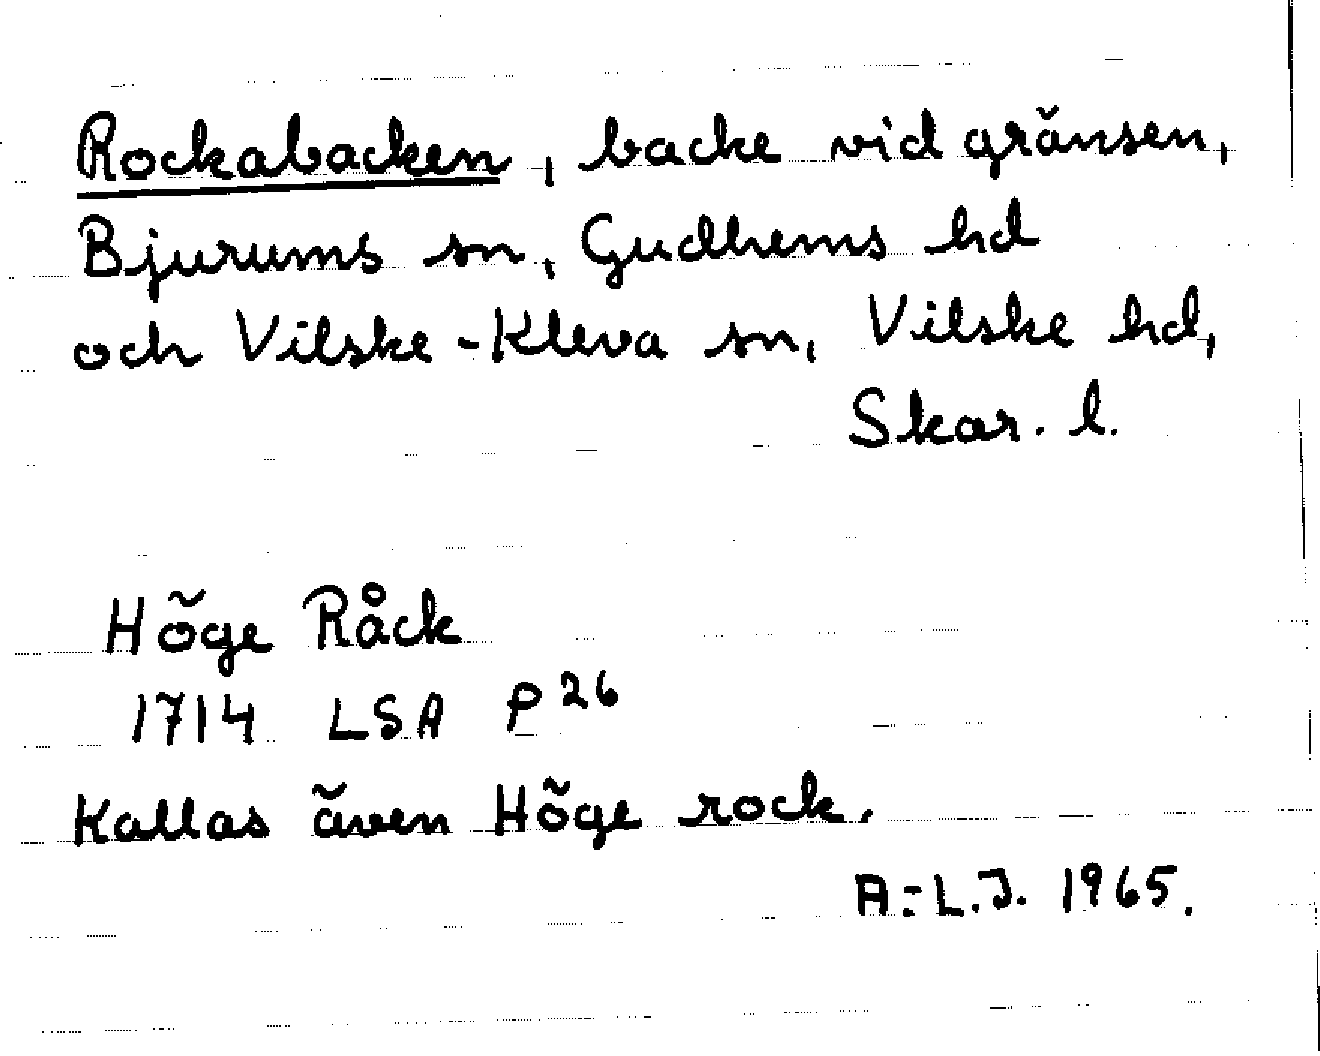 Rockabacken, backe vid gränsen,
Bjurums sn, Gudhems hd
och Vilske-Kleva sn, Vilske hd,
Skar. l.
Höge Råck
1714 LSA P 26
Kallas även Höge rock.
A.-L.J. 1965.